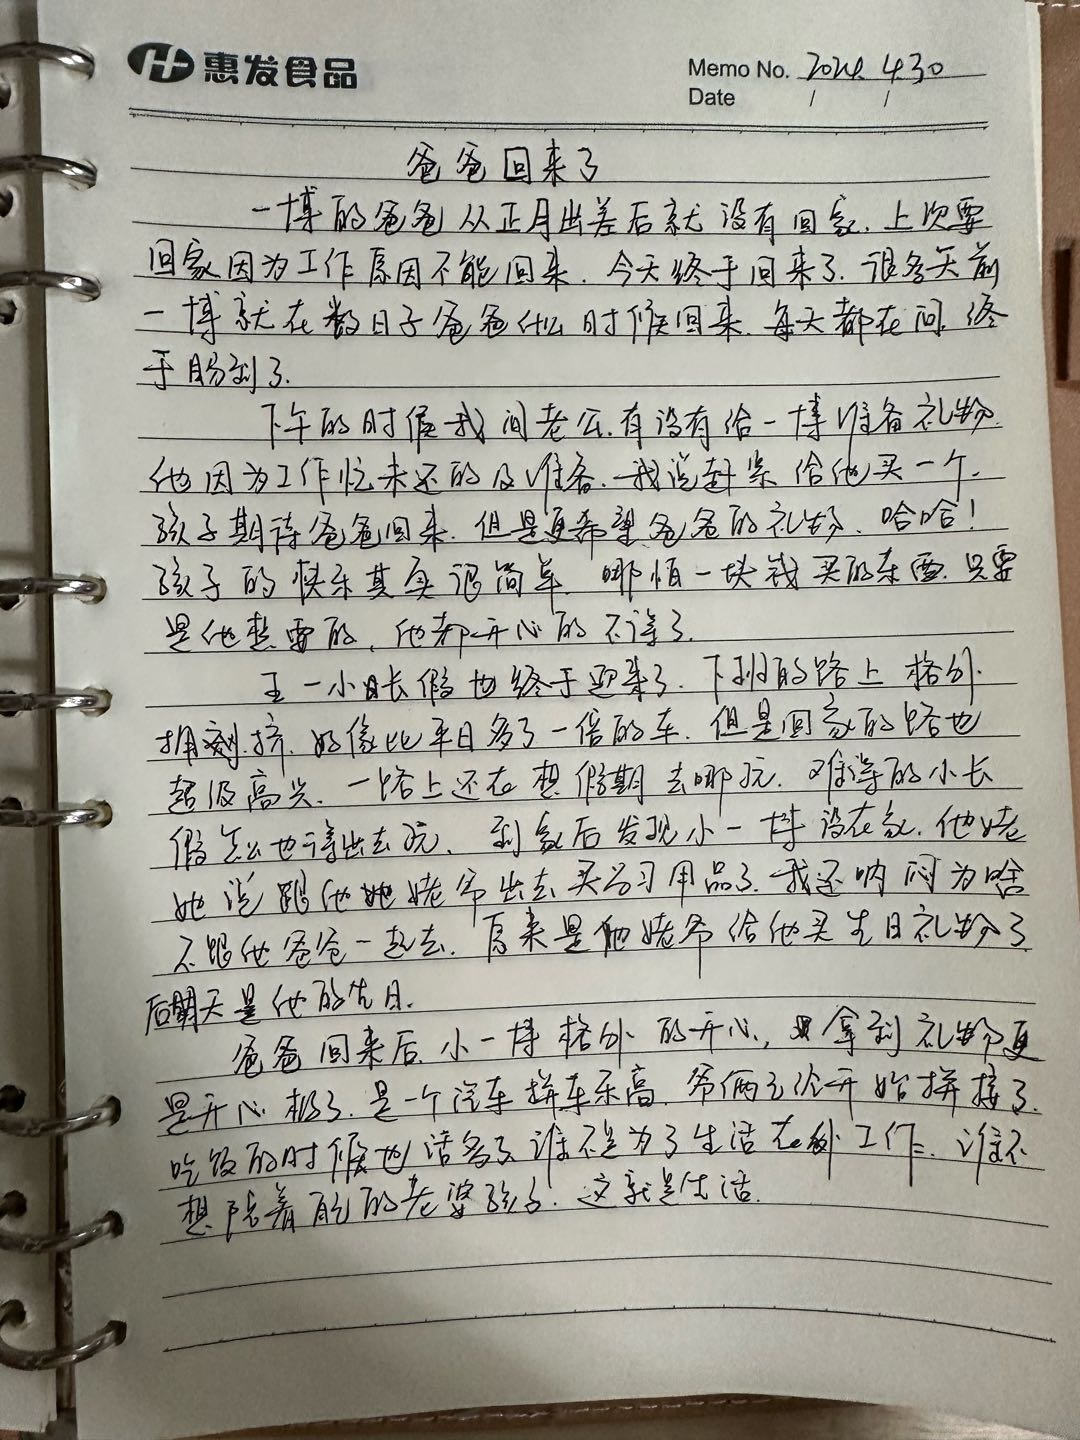 惠发食品
Memo No. 2024. 4.30
Date / /
爸爸回来了
一博的爸爸从正月出差后就没有回家. 上次要
回家因为工作原因不能回来. 今天终于回来了. 很多天前
一博就在数日子爸爸什么时候回来. 每天都在问. 终
于盼到了.
下午的时候我问老公. 有没有给一博准备礼物.
他因为工作忙未还的及准备. 我说赶紧给他买一个.
孩子期待爸爸回来. 但是更希望爸爸的礼物. 哈哈!
孩子的快乐其实很简单. 哪怕一块钱买的东西. 只要
是他想要的, 他都开心的不得了.
五一小长假也终于迎来了. 下班的路上格外
拥挤. 好像比平日多了一倍的车. 但是回家的路也
超级高兴. 一路上还在想假期去哪玩. 难得的小长
假怎么也得出去玩. 到家后发现小一博没在家. 他姥
姥说跟他姥爷出去买学习用品了. 我还呐闷为啥
不跟他爸爸一起去. 原来是他姥爷给他买生日礼物了
后天是他的生日.
爸爸回来后. 小一博格外的开心, 拿到礼物更
是开心极了. 是一个汽车拼车乐高. 爷俩无论开始拼接了.
吃饭的时候也话多了. 谁不是为了生活在外工作. 谁不
想陪着自己的老婆孩子. 这就是生活.